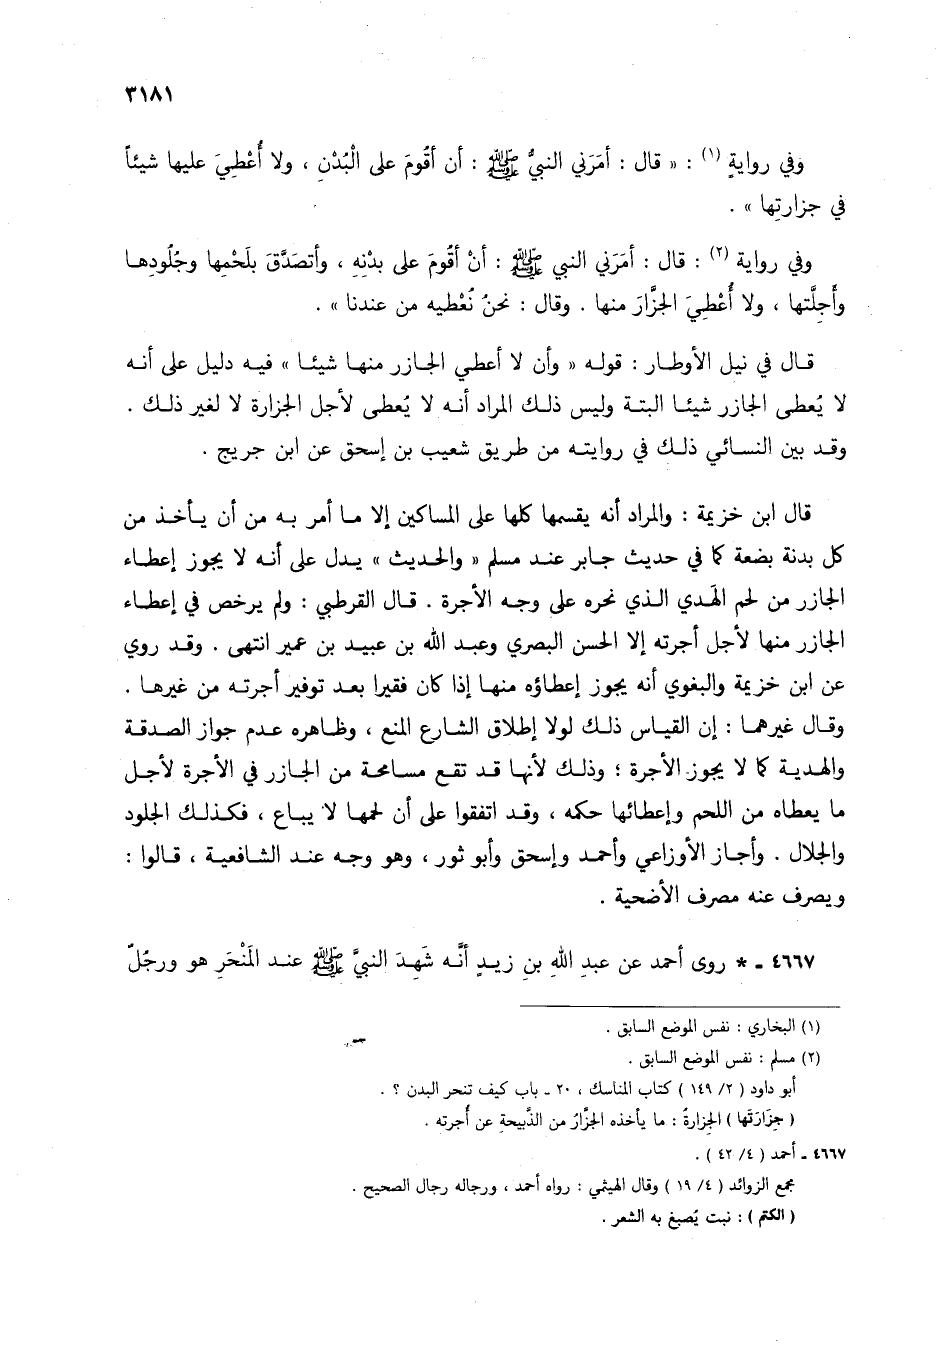 ٣١٨١
وَفي روايةٍ (١) : « قال : أمَرَني النبيُّ ﷺ : أن أقُومَ على الْبُدْنِ ، ولا أُعْطِيَ عليها شيئاً
في جزارتِها » .
وفي رواية (٢) : قال : أمَرَني النبي ﷺ : أنْ أقُومَ على بدْنِهِ ، وأتصَدَّقَ بلَحْمِها وجُلُودِهـا
وأَجِلَّتها ، ولا أُعْطِيَ الجزَّارَ منها . وقال : نحنُ نُعْطيه من عندنا » .
قـال في نيل الأوطـار : قولـه « وأن لا أعطي الجـازر منهـا شيئـا » فيـه دليل على أنـه
لا يُعطى الجازر شيئـا البتـة وليس ذلـك المراد أنـه لا يُعطى لأجل الجزارة لا لغير ذلـك .
وقـد بين النسـائي ذلـك في روايتـه من طريق شعيب بن إسحق عن ابن جريج .
قال ابن خزيمة : والمراد أنه يقسمها كلها على المساكين إلا مـا أمر بـه من أن يـأخـذ من
كل بدنة بضعة كما في حديث جـابر عنـد مسلم « والحـديث » يـدل على أنـه لا يجوز إعطـاء
الجازر من لحم الهَدي الـذي نحره على وجـه الأجرة . قـال القرطبي : ولم يرخص في إعطـاء
الجـازر منها لأجل أجرته إلا الحسن البصري وعبـد الله بن عبيـد بن عمير انتهى . وقـد روي
عن ابن خزيمة والبغوي أنه يجوز إعطاؤه منهـا إذا كان فقيرا بعـد توفير أجرتـه من غيرهـا .
وقـال غيرهمـا : إن القيـاس ذلـك لولا إطلاق الشـارع المنع ، وظـاهره عـدم جواز الصـدقـة
والهـديـة كما لا يجوز الأجرة ؛ وذلـك لأنهـا قـد تقـع مسـامحـة من الجـازر في الأجرة لأجـل
ما يعطاه من اللحم وإعطائها حكمه ، وقـد اتفقوا على أن لحمهـا لا يبـاع ، فكـذلـك الجلود
والجلال . وأجـاز الأوزاعي وأحمـد وإسحق وأبو ثور ، وهو وجـه عنـد الشـافعيـة ، قـالوا :
ويصرف عنه مصرف الأضحية .
٤٦٦٧ ـ * روى أحمد عن عبدِ اللهِ بنِ زيـدٍ أنَّـه شَهِـدَ النبيَّ ﷺ عنـد المَنْحَرِ هو ورجُلٌ
(١) البخاري : نفس الموضع السابق .
(٢) مسلم : نفس الموضع السابق .
أبو داود ( ٢/ ١٤٩ ) كتاب المناسك ، ٢٠ ـ باب كيف تنحر البدن ؟ .
( جِزَارَتَها ) الجِزارةُ : ما يأخذه الجزَّارُ من الذَّبيحةِ عن أُجرته .
٤٦٦٧ ـ أحمد ( ٤/ ٤٢ ) .
مجمع الزوائد ( ٤/ ١٩ ) وقال الهيثمي : رواه أحمد ، ورجاله رجال الصحيح .
( الكتم ) : نبت يُصبغ به الشعر .